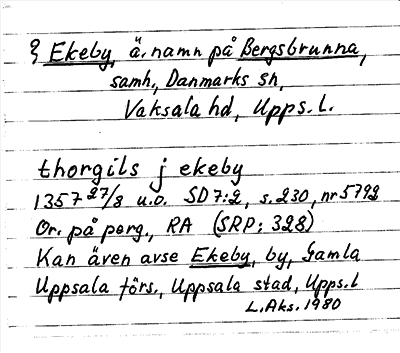 ? Ekeby, ä. namn på Bergsbrunna,
samh., Danmarks sn,
Vaksala hd, Upps. l.
thorgils j ekeby
1357 27/8 u.o. SD 7:2, s. 230, nr 5792
Or. på perg., RA (SRP: 328)
Kan även avse Ekeby, by, Gamla
Uppsala förs., Uppsala stad, Upps. l
L. Aks. 1980